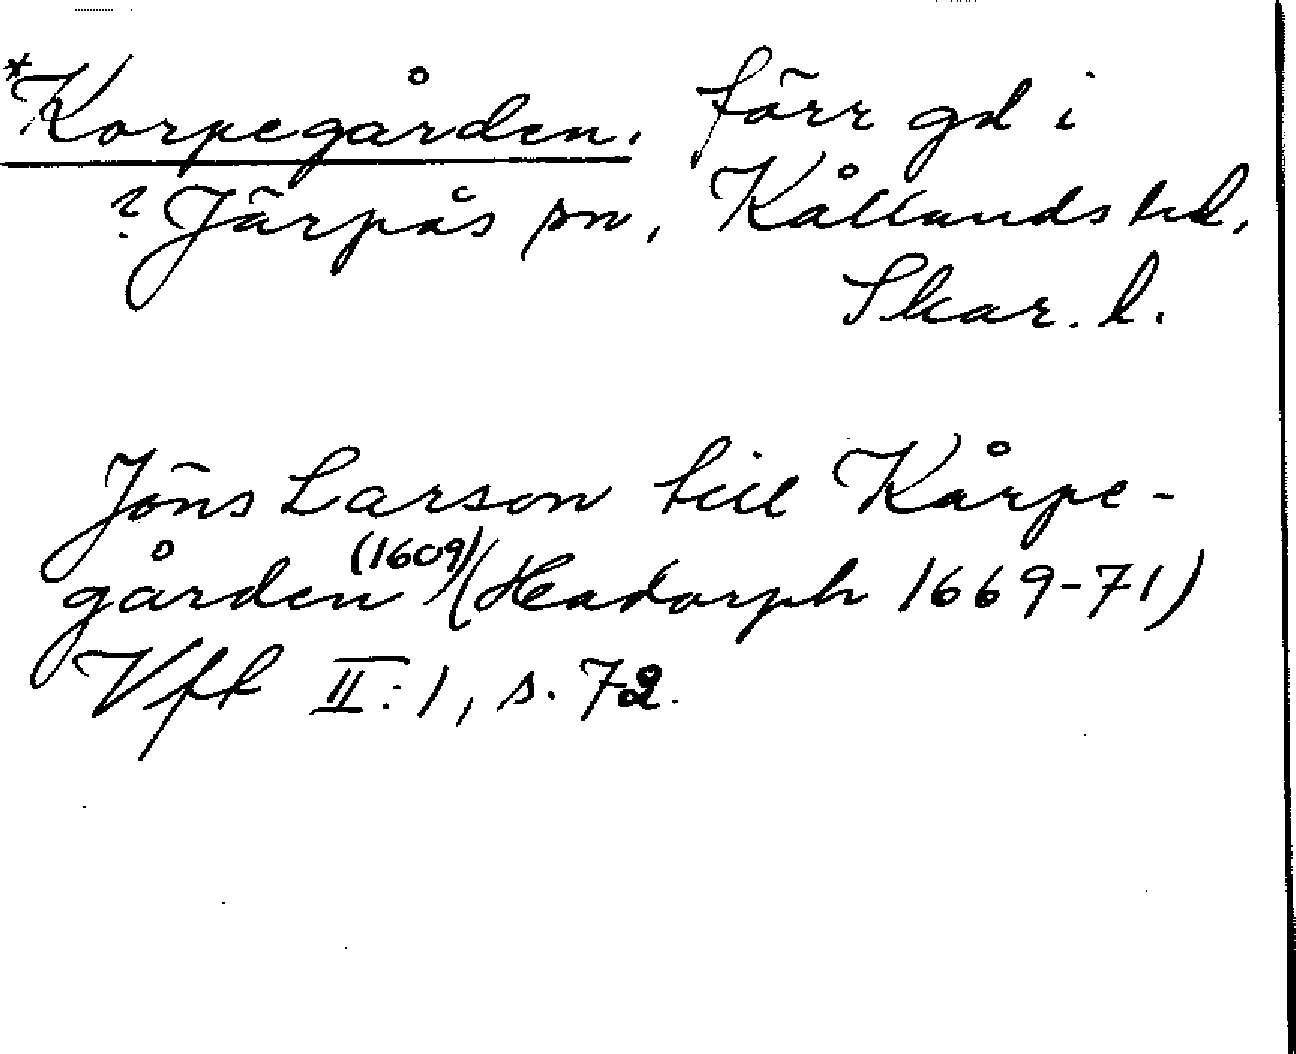 *Korpegården. förr gd i
? Järpås sn, Kållands hd,
Skar. l.
Jöns Larson till Kårpe-
gården (1609) (Hadorph 1669-71)
Vff II:1, s. 72.